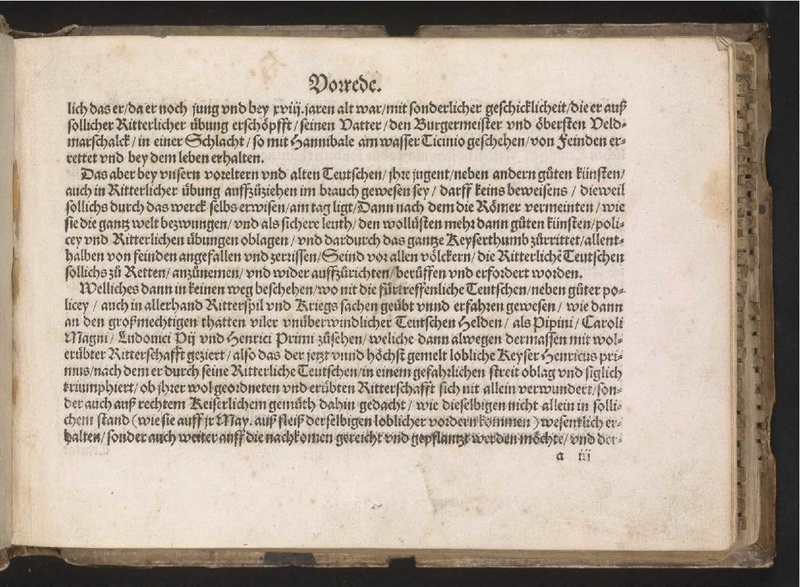 Vorrede.
lich das er/da er noch jung vnd bey xviij.jaren alt war/mit sonderlicher geschicklicheit/die er auß
sollicher Ritterlicher übung erschöpfft/seinen Vatter/den Burgermeister vnd öbersten Veld⸗
marschalck/in einer Schlacht/so mit Hannibale am wasser Ticinio geschehen/von Feinden er⸗
rettet vnd bey dem leben erhalten.
Das aber bey vnsern voreltern vnd alten Teutschen/jhre jugent/neben andern gůten künsten/
auch in Ritterlicher übung auffzůziehen im brauch gewesen sey/darff keins beweisens/dieweil
sollichs durch das werck selbs erwisen/am tag ligt/Dann nach dem die Römer vermeinten/wie
sie die gantz welt bezwungen/vnd als sichere leuth/den wollüsten mehr dann gůten künsten/poli⸗
cey vnd Ritterlichen übungen oblagen/vnd dardurch das gantze Keyserthumb zůrrittet/allent⸗
halben von feinden angefallen vnd zerrissen/Seind vor allen völckern/die Ritterlichē Teutschen
sollichs zů Retten/anzůnemen/vnd wider auffzůrichten/berůffen vnd erfordert worden.
Welliches dann in keinen weg beschehen/wo nit die fürtreffenliche Teutschen/neben gůter po⸗
licey/auch in allerhand Ritterspil vnd Kriegs sachen geübt vnnd erfahren gewesen/wie dann
an den großmechtigen thatten viler vnüberwindlicher Teutschen Helden/als Pipini/Caroli
Magni/Ludouici Pij vnd Henrici Primi zůsehen/weliche dann alwegen dermassen mit wol⸗
erübter Ritterschafft geziert/also das der jetzt vnnd höchst gemelt lobliche Keyser Henricus pri⸗
mus/nach dem er durch seine Ritterliche Teutschen/in einem gefahrlichen streit oblag vnd siglich
triumphiert/ob jhrer wol geordneten vnd erübten Ritterschafft sich nit allein verwundert/son⸗
der auch auß rechtem Keiserlichem gemüth dahin gedacht/wie dieselbigen nicht allein in solli⸗
chem stand (wie sie auff jr May. auß fleiß derselbigen loblicher vordern kommen) wesentlich er⸗
halten/sonder auch weiter auff die nachkomen gereicht vnd gepflantzt werden möchte/vnd der⸗
a iij